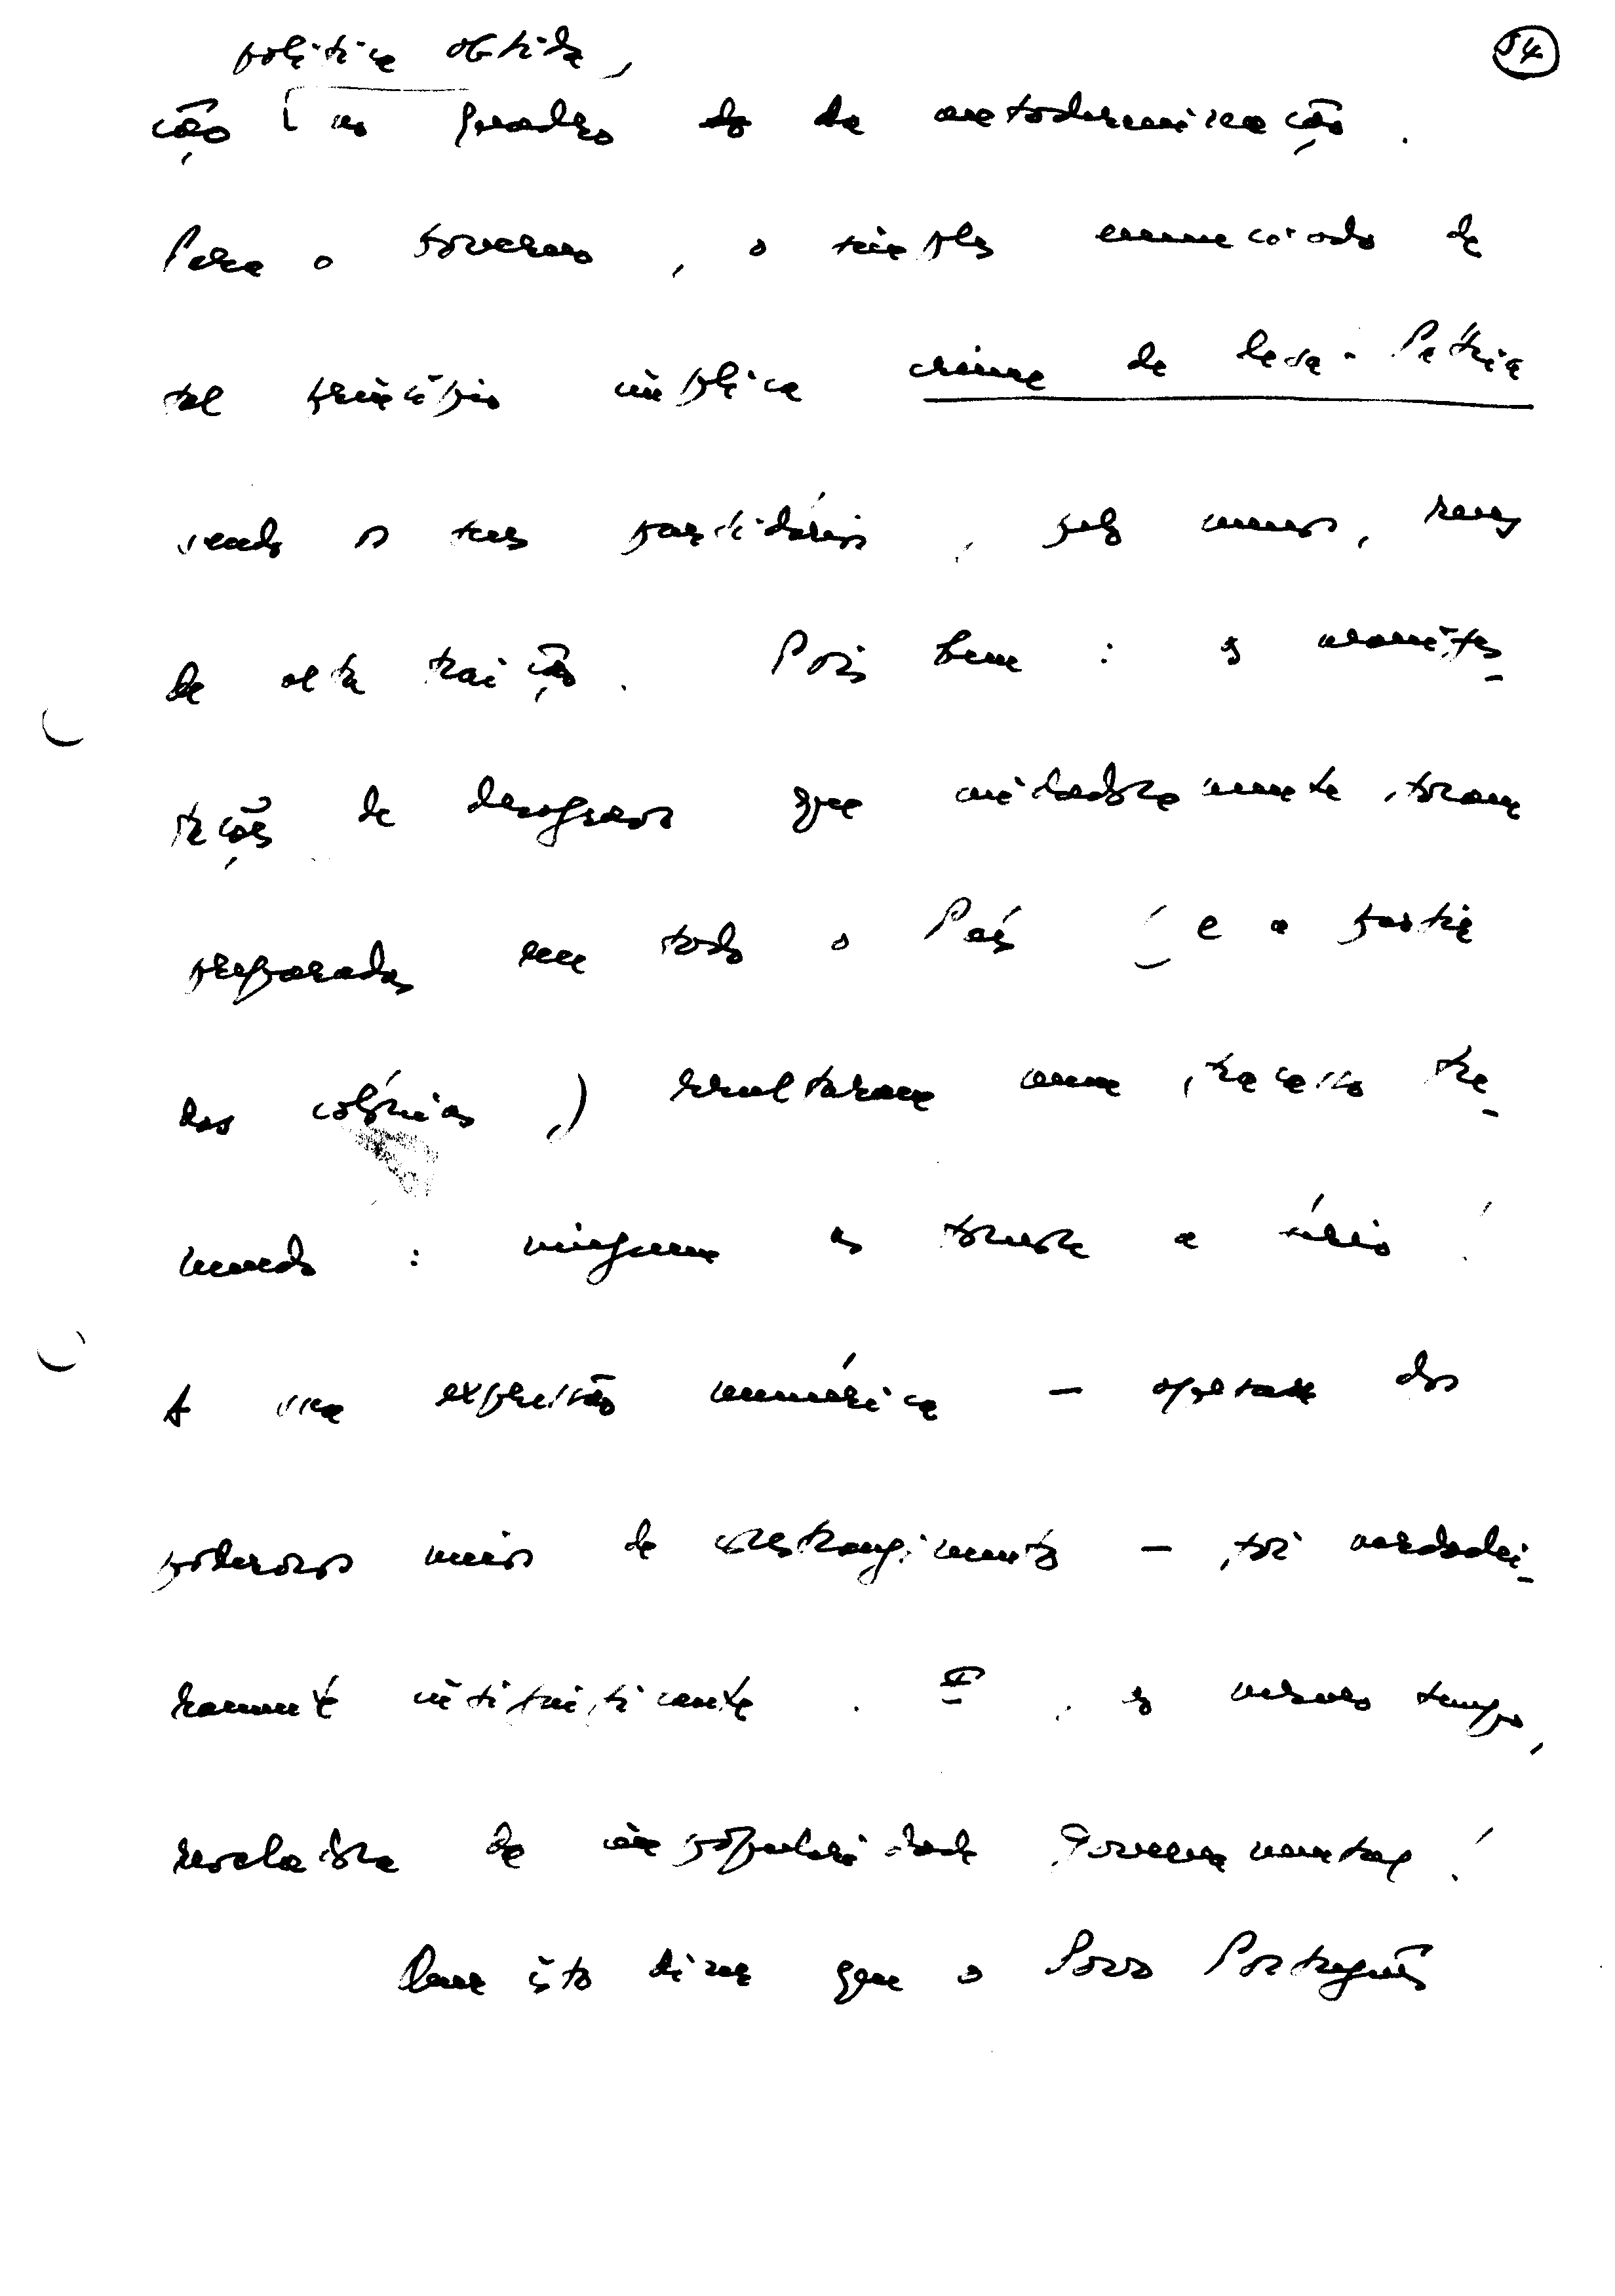 54
política obtida,
ção no quadro do da autodeterminação.
Para o Governo, o simples enunciado de
tal princípio implica crime de lesa-Pátria
sendo os seus partidários, pelo menos, reus
de alta traição. Pois bem: as manifes-
tações de desagravo que cuidadosamente foram
preparadas em todo o País (e a partir
das colónias,) resultaram num fracasso tre-
mendo: ninguem as tomou a sério!
A sua expressão numérica — apesar dos
poderosos meios de constrangimento — foi verdadei-
ramente insignificante. E, ao mesmo tempo,
reveladora da impopularidade governamental!
Quer isto dizer que o Povo Português